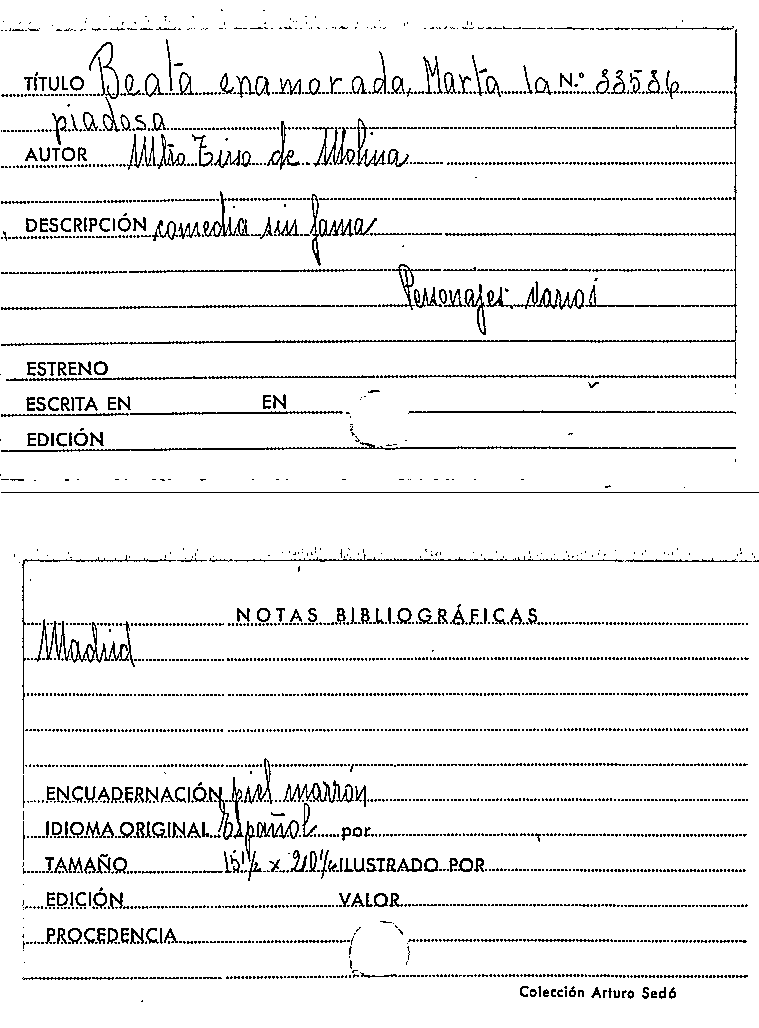 TÍTULO Beata enamorada, Marta la N.º 33536
piadosa
AUTOR Mtro Tirso de Molina
DESCRIPCIÓN comedia sin fama
Personajes: varios
ESTRENO
ESCRITA EN EN
EDICIÓN
NOTAS BIBLIOGRÁFICAS
Madrid
ENCUADERNACIÓN piel marrón
IDIOMA ORIGINAL Español por
TAMAÑO 15½ x 20½ ILUSTRADO POR
EDICIÓN VALOR
PROCEDENCIA
Colección Arturo Sedó